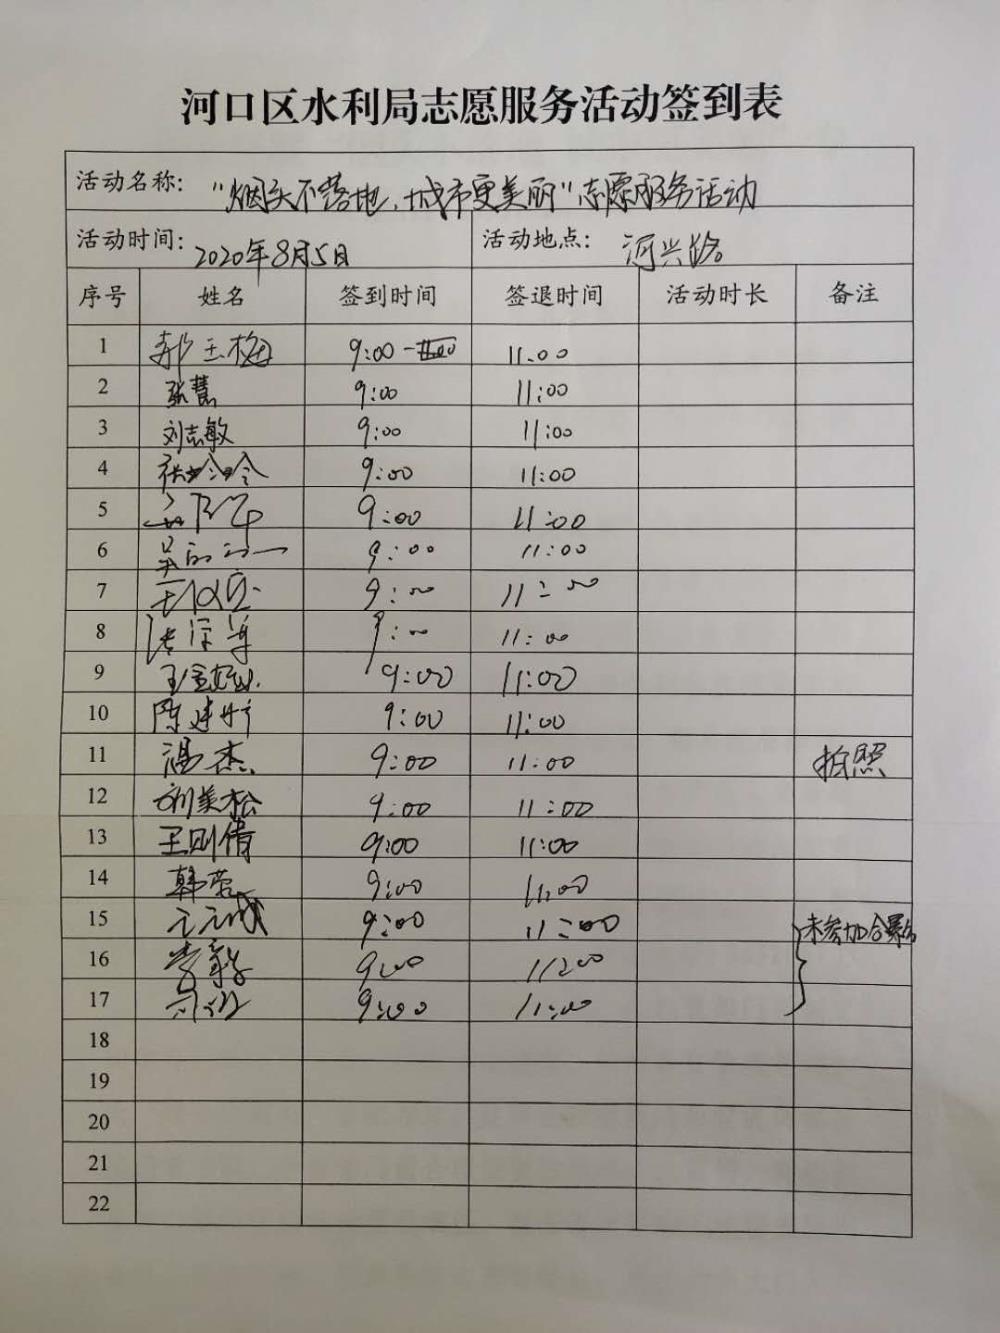 河口区水利局志愿服务活动签到表
活动名称: "烟头不落地,城市更美丽"志愿服务活动
活动时间: 2020年8月5日 活动地点: 河兴路
序号 姓名 签到时间 签退时间 活动时长 备注
1 郝玉梅 9:00 11:00
2 张慧 9:00 11:00
3 刘志敏 9:00 11:00
4 张玲玲 9:00 11:00
5 9:00 11:00
6 9:00 11:00
7 9:00 11:00
8 9:00 11:00
9 9:00 11:00
10 陈建 9:00 11:00
11 温杰 9:00 11:00 拍照
12 刘美松 9:00 11:00
13 王则倩 9:00 11:00
14 韩蕾 9:00 11:00
15 9:00 11:00 未参加合影
16 李毅 9:00 11:00
17 9:00 11:00
18
19
20
21
22